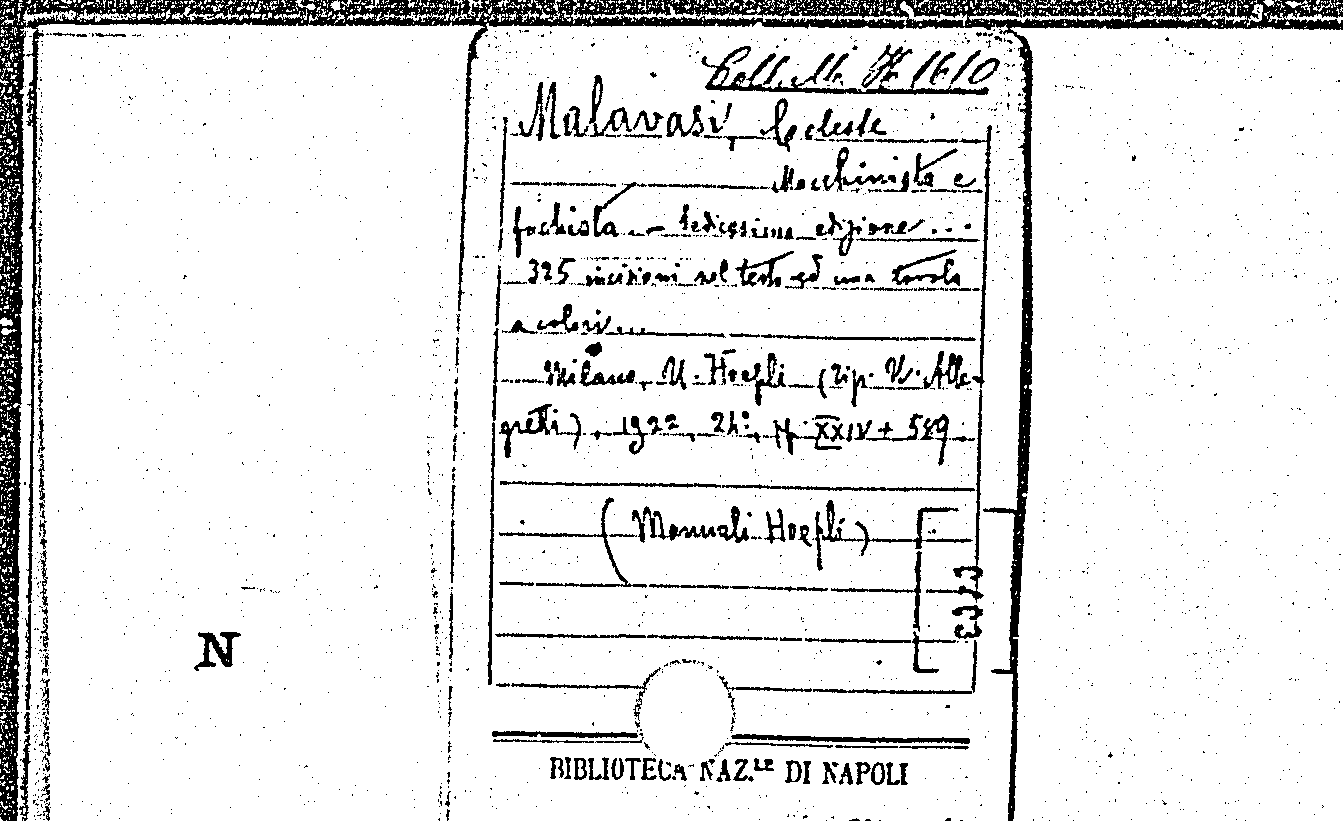 Coll. M. H 1610
Malavasi, Celeste
Macchinista e
fochista.— Sedicesima edizione...
325 incisioni nel testo ed una tavola
a colori...
Milano, U. Hoepli (tip. V. Alle-
gretti), 1922, 24°, pp. XXIV + 589.
(Manuali Hoepli)
N
BIBLIOTECA NAZ.LE DI NAPOLI